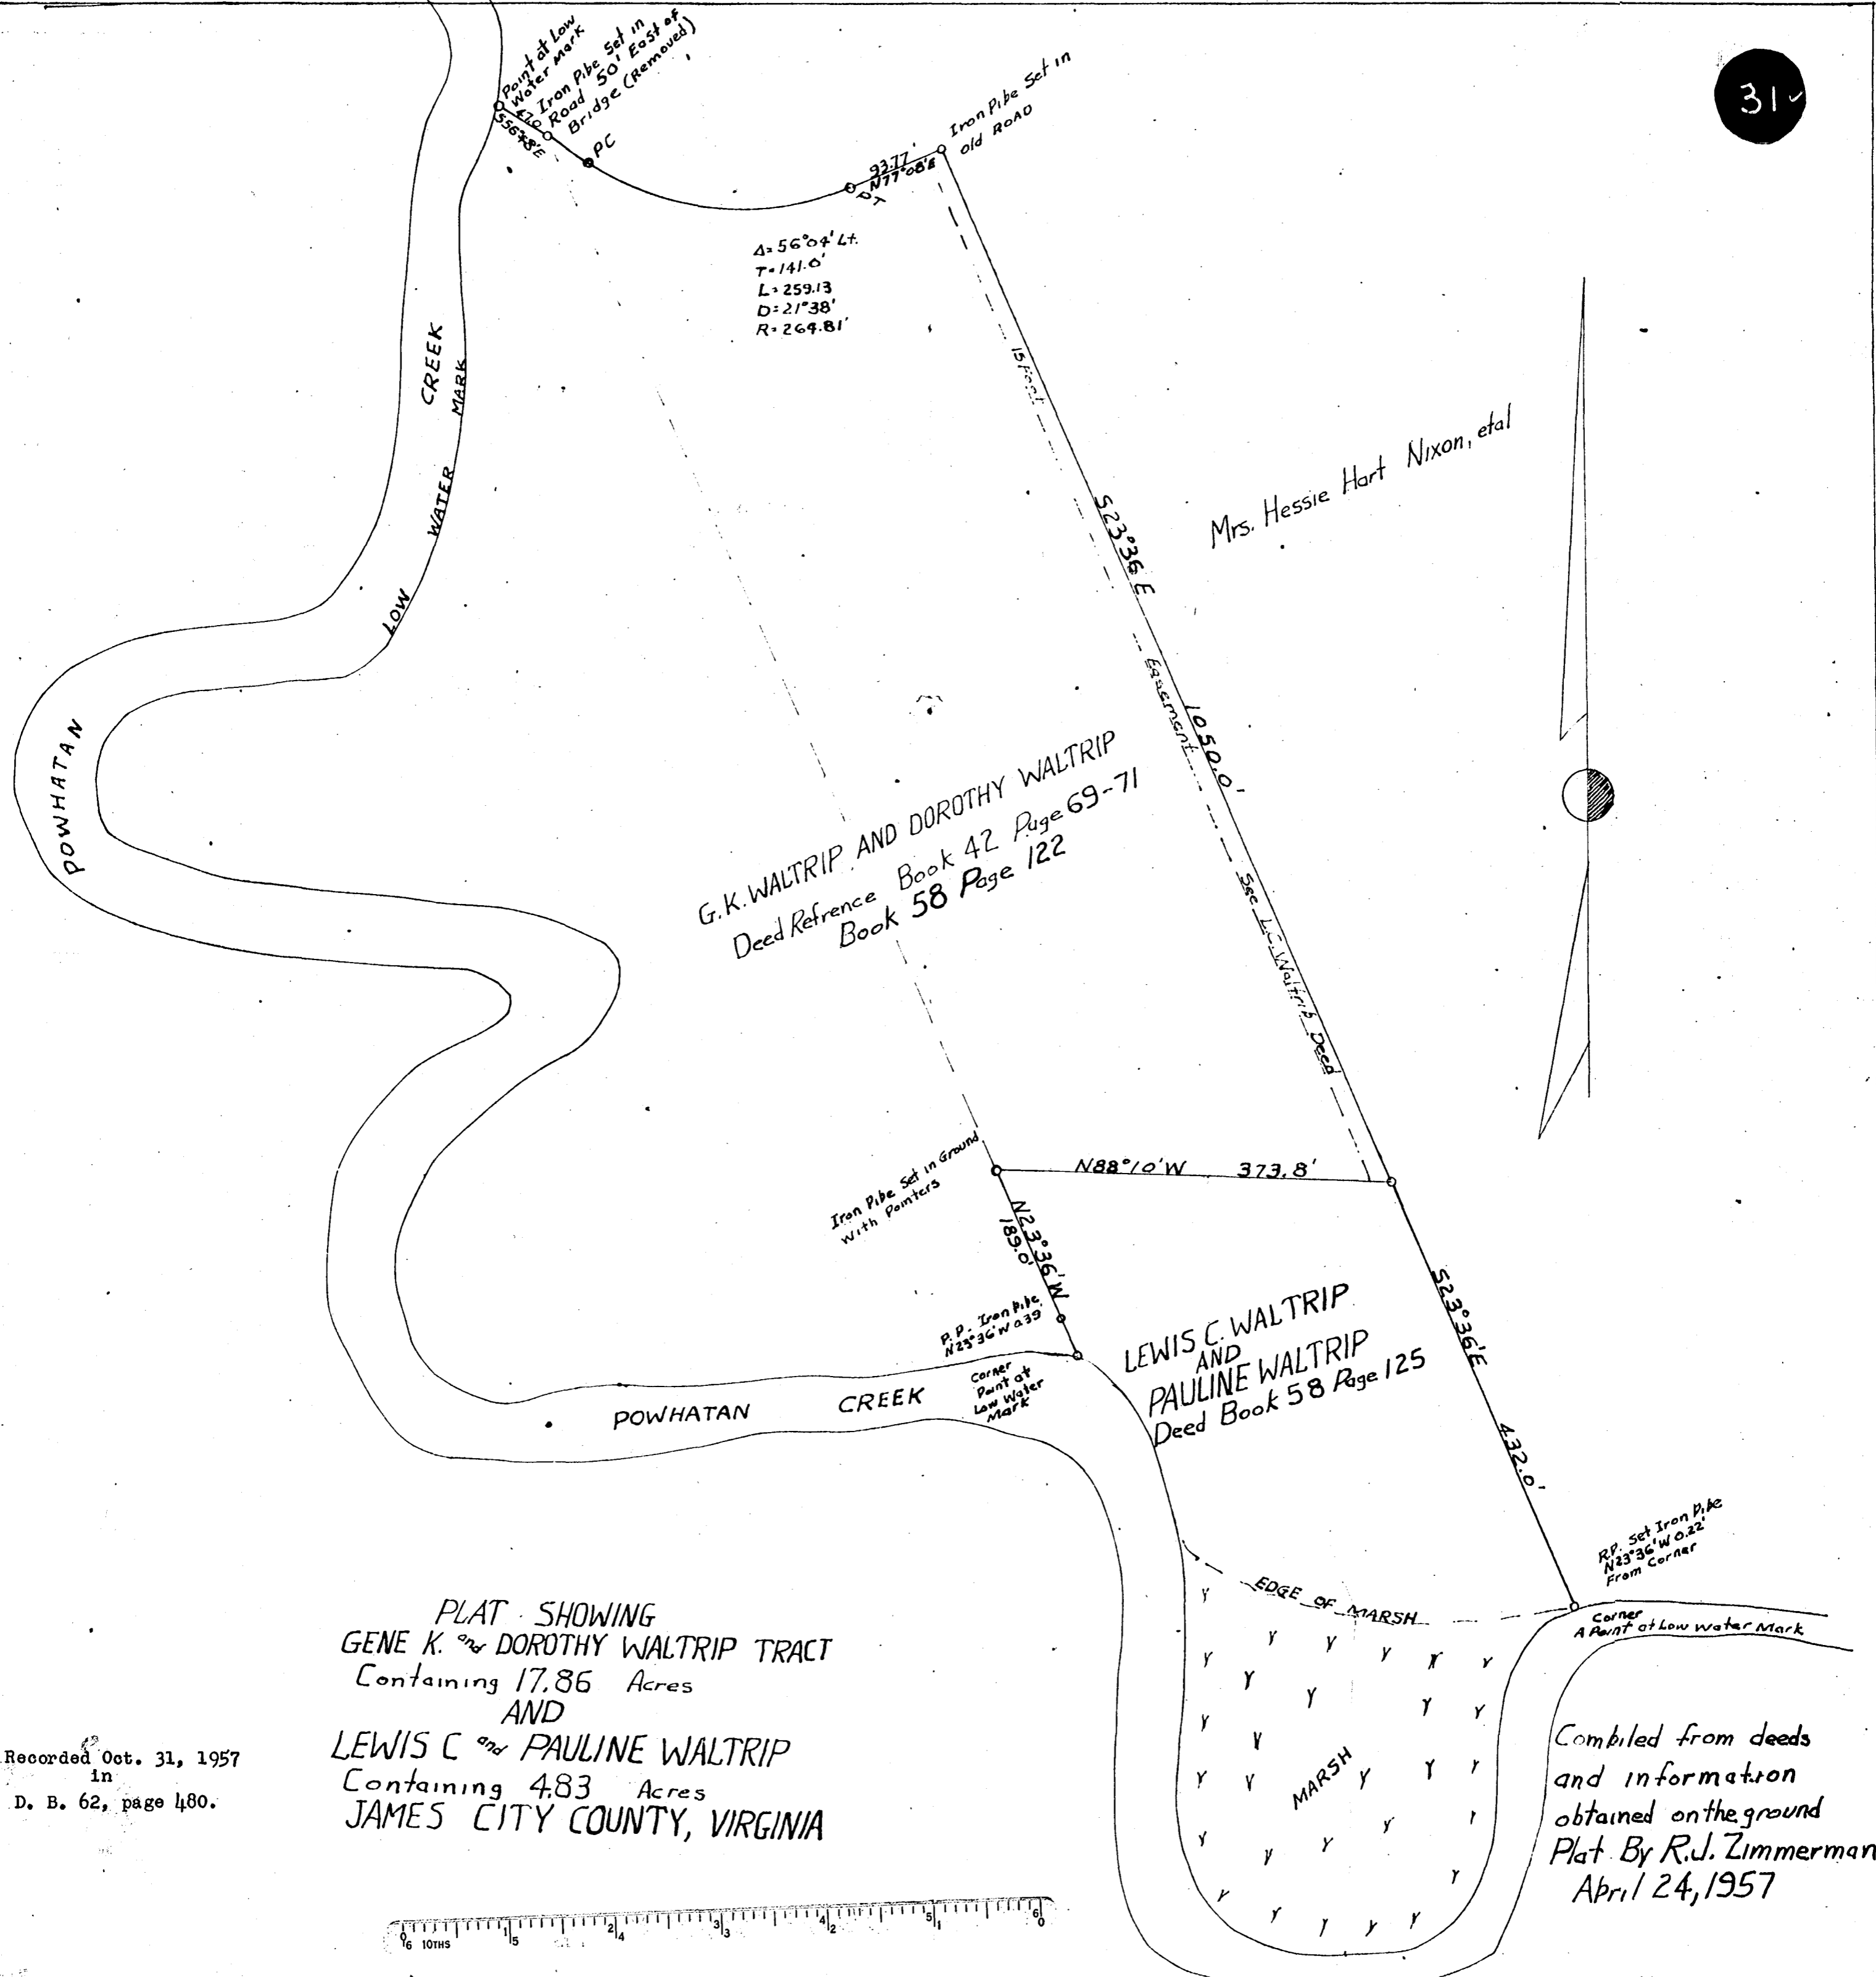 31
Point at Low
Water Mark
47.0
S56°48'E
Iron Pipe Set in
Road 50' East of
Bridge (Removed)
PC
93.77'
N77°08'E
PT
Iron Pipe Set in
old ROAD
Δ=56°04' Lt.
T=141.0'
L=259.13
D=21°38'
R=264.81'
15 Foot
Easement
See L.C. Waltrip Deed
S23°36'E
1050.0'
Mrs. Hessie Hart Nixon, etal
CREEK
LOW WATER MARK
POWHATAN
G.K. WALTRIP AND DOROTHY WALTRIP
Deed Refrence Book 42 Page 69-71
Book 58 Page 122
Iron Pipe Set in Ground
With Pointers
N88°10'W 373.8'
N23°36'W
189.0'
R.P. Iron Pipe
N23°36'W 0.39'
Corner
Point at
Low Water
Mark
POWHATAN CREEK
LEWIS C. WALTRIP
AND
PAULINE WALTRIP
Deed Book 58 Page 125
S23°36'E
432.0'
R.P. Set Iron Pipe
N23°36'W 0.22'
From Corner
Corner
A Point at Low Water Mark
EDGE OF MARSH
MARSH
PLAT SHOWING
GENE K. and DOROTHY WALTRIP TRACT
Containing 17.86 Acres
AND
LEWIS C and PAULINE WALTRIP
Containing 4.83 Acres
JAMES CITY COUNTY, VIRGINIA
Recorded Oct. 31, 1957
in
D. B. 62, page 480.
Compiled from deeds
and information
obtained on the ground
Plat By R.J. Zimmerman
April 24, 1957
0 1 2 3 4 5 6
6 5 4 3 2 1 0
10THS